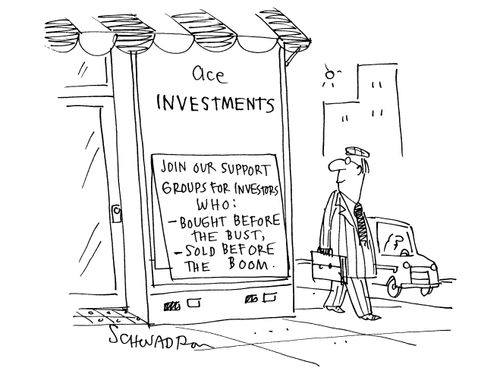 ace
INVESTMENTS
JOIN OUR SUPPORT
GROUPS FOR INVESTORS
WHO:
-BOUGHT BEFORE
THE BUST,
-SOLD BEFORE
THE BOOM.
SCHWADRON